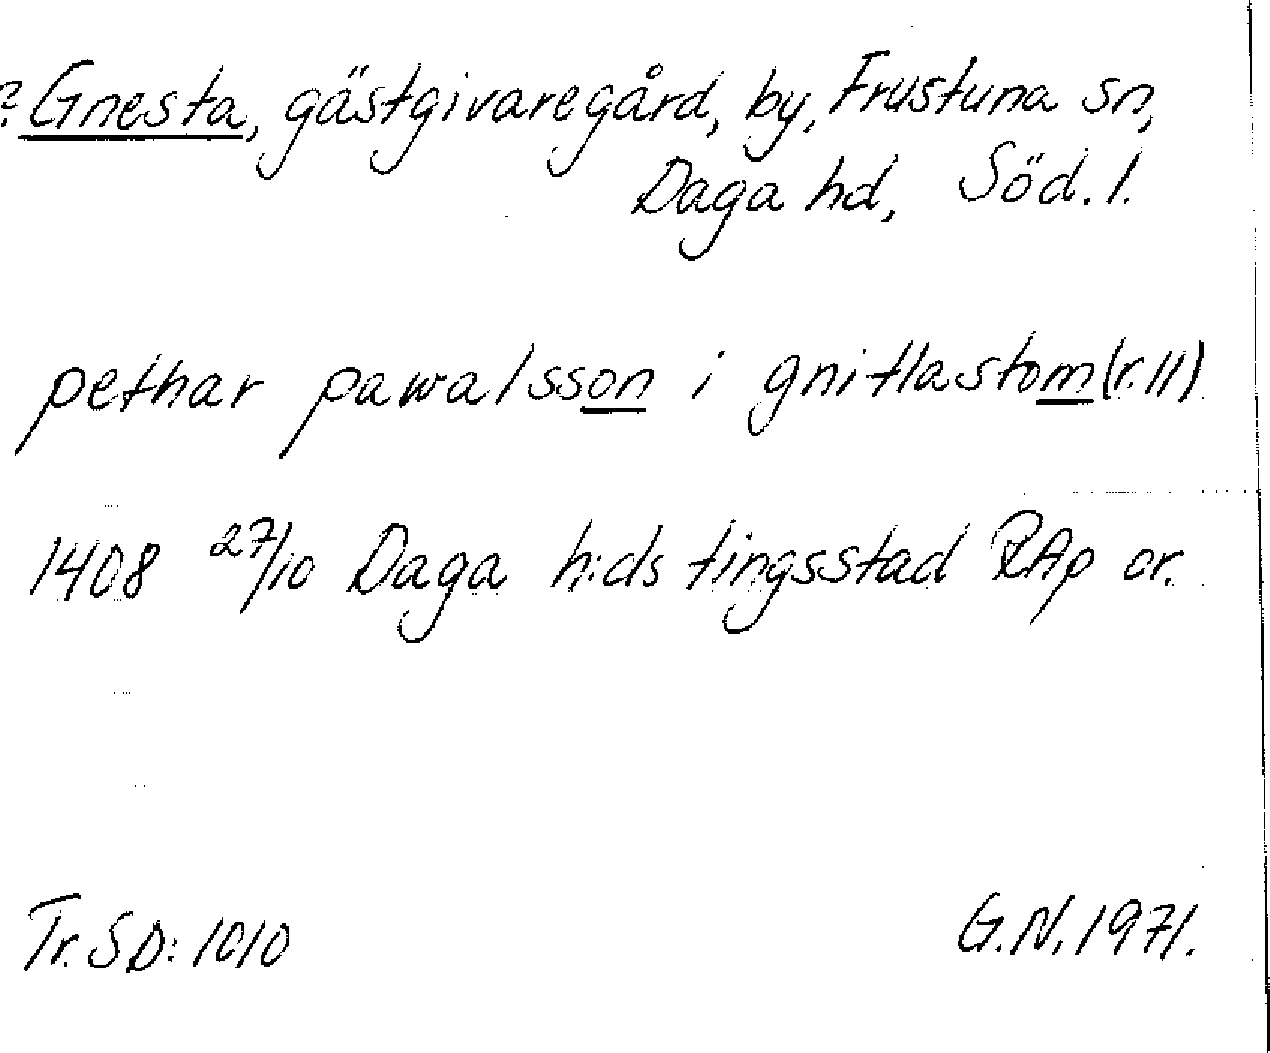 ? Gnesta, gästgivaregård, by, Frustuna sn,
Daga hd, Söd. l.
pethar pawalsson i gnitlastom (r. 11)
1408 27/10 Daga h:ds tingsstad RAp or.
Tr. SD: 1010
G.N. 1971.